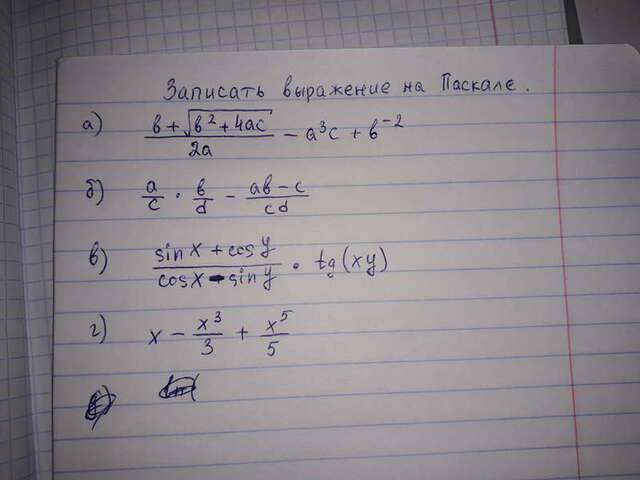 Записать выражение на Паскале.
а) (b + √(b² + 4ac)) / 2a − a³c + b⁻²
б) a/c · b/d − (ab − c)/cd
в) (sin x + cos y)/(cos x − sin y) · tg(xy)
г) x − x³/3 + x⁵/5